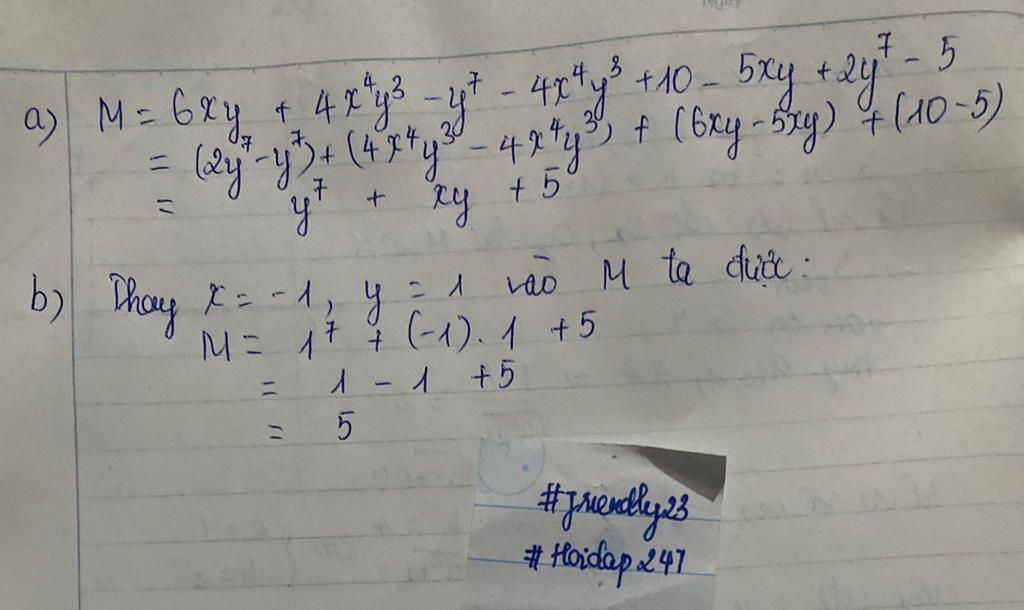 a) M = 6xy + 4x⁴y³ - y⁷ - 4x⁴y³ + 10 - 5xy + 2y⁷ - 5
= (2y⁷ - y⁷) + (4x⁴y³ - 4x⁴y³) + (6xy - 5xy) + (10 - 5)
= y⁷ + xy + 5
b) Thay x = -1, y = 1 vào M ta được:
M = 1⁷ + (-1). 1 + 5
= 1 - 1 + 5
= 5
#friendly23
#Hoidap247